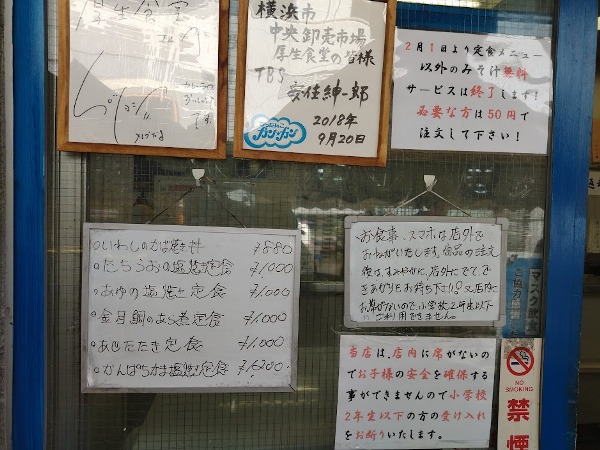 厚生食堂
横浜市
中央卸売市場
厚生食堂の皆様
TBS
安住紳一郎
2018年
9月20日
2月1日より定食メニュー
以外のみそ汁無料
サービスは終了します!
必要な方は50円で
注文して下さい!
いわしのかば焼き丼 ¥880
たちうおの塩焼定食 ¥1,000
あゆの塩焼き定食 ¥1,000
金目鯛のあら煮定食 ¥1,000
あじたたき定食 ¥1,000
かんぱちかま塩焼定食 ¥1,200
お食事、スマホは店外で
おねがいたします。商品の注文
後は、すみやかに、店外にでて、で
きあがりをお待ち下さい!又店内に
お席がないので、小学校2年生以下
ご利用できません。
当店は、店内に席がないの
でお子様の安全を確保する
事ができませんので小学校
2年生以下の方の受け入れ
をお断りいたします。
マスク
ご協力
NO
SMOKING
禁煙